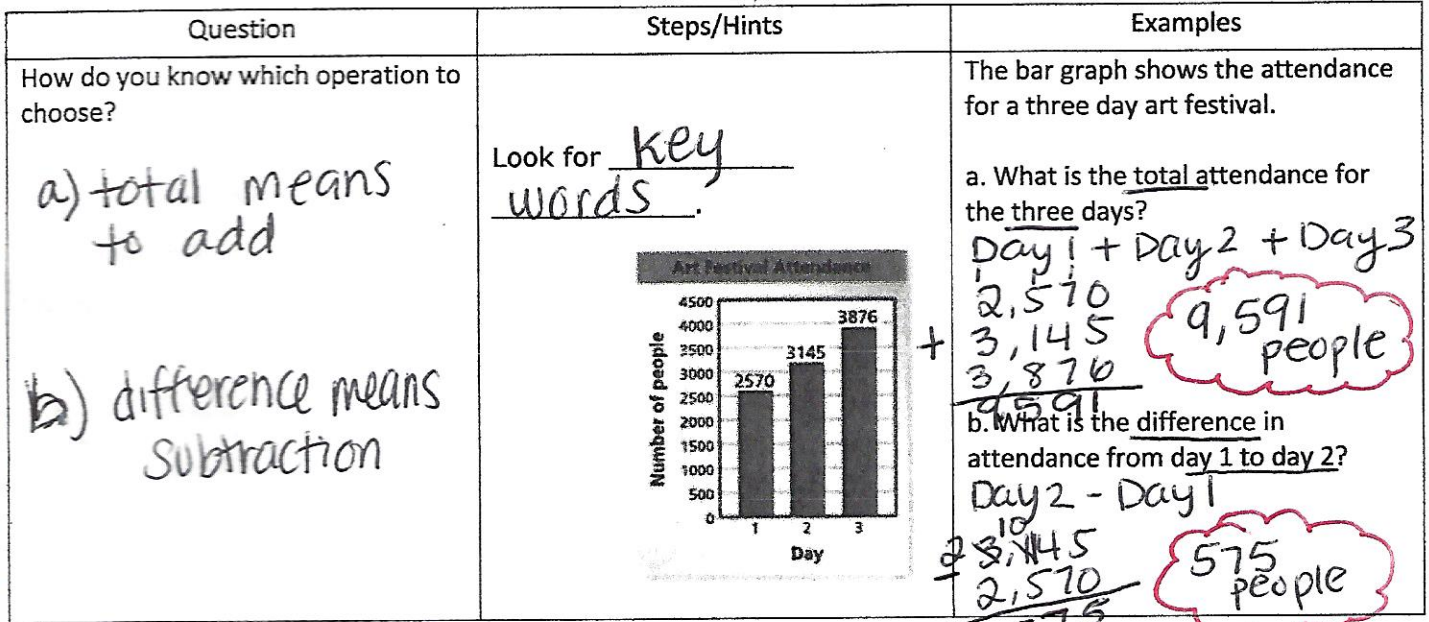 Question
How do you know which operation to
choose?
a) total means
to add
b) difference means
subtraction
Steps/Hints
Look for key
words.
Art Festival Attendance
Number of people
4500
4000
3500
3000
2500
2000
1500
1000
500
0
2570
3145
3876
1 2 3
Day
Examples
The bar graph shows the attendance
for a three day art festival.
a. What is the total attendance for
the three days?
Day 1 + Day 2 + Day 3
1 1 1
2,570
+ 3,145
3,876
9591
9,591
people
b. What is the difference in
attendance from day 1 to day 2?
Day 2 - Day 1
2 10
3,145
- 2,570
575
575
people